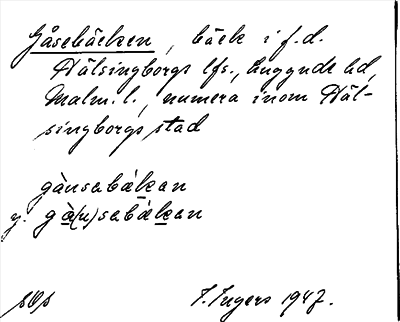 Gåsebäcken, bäck i f.d.
Hälsingborgs lfs., Luggude hd,
Malm. l., numera inom Häl-
singborgs stad
gànsabàkan
y. gà(n)sabàkan
I. Ingers 1947.